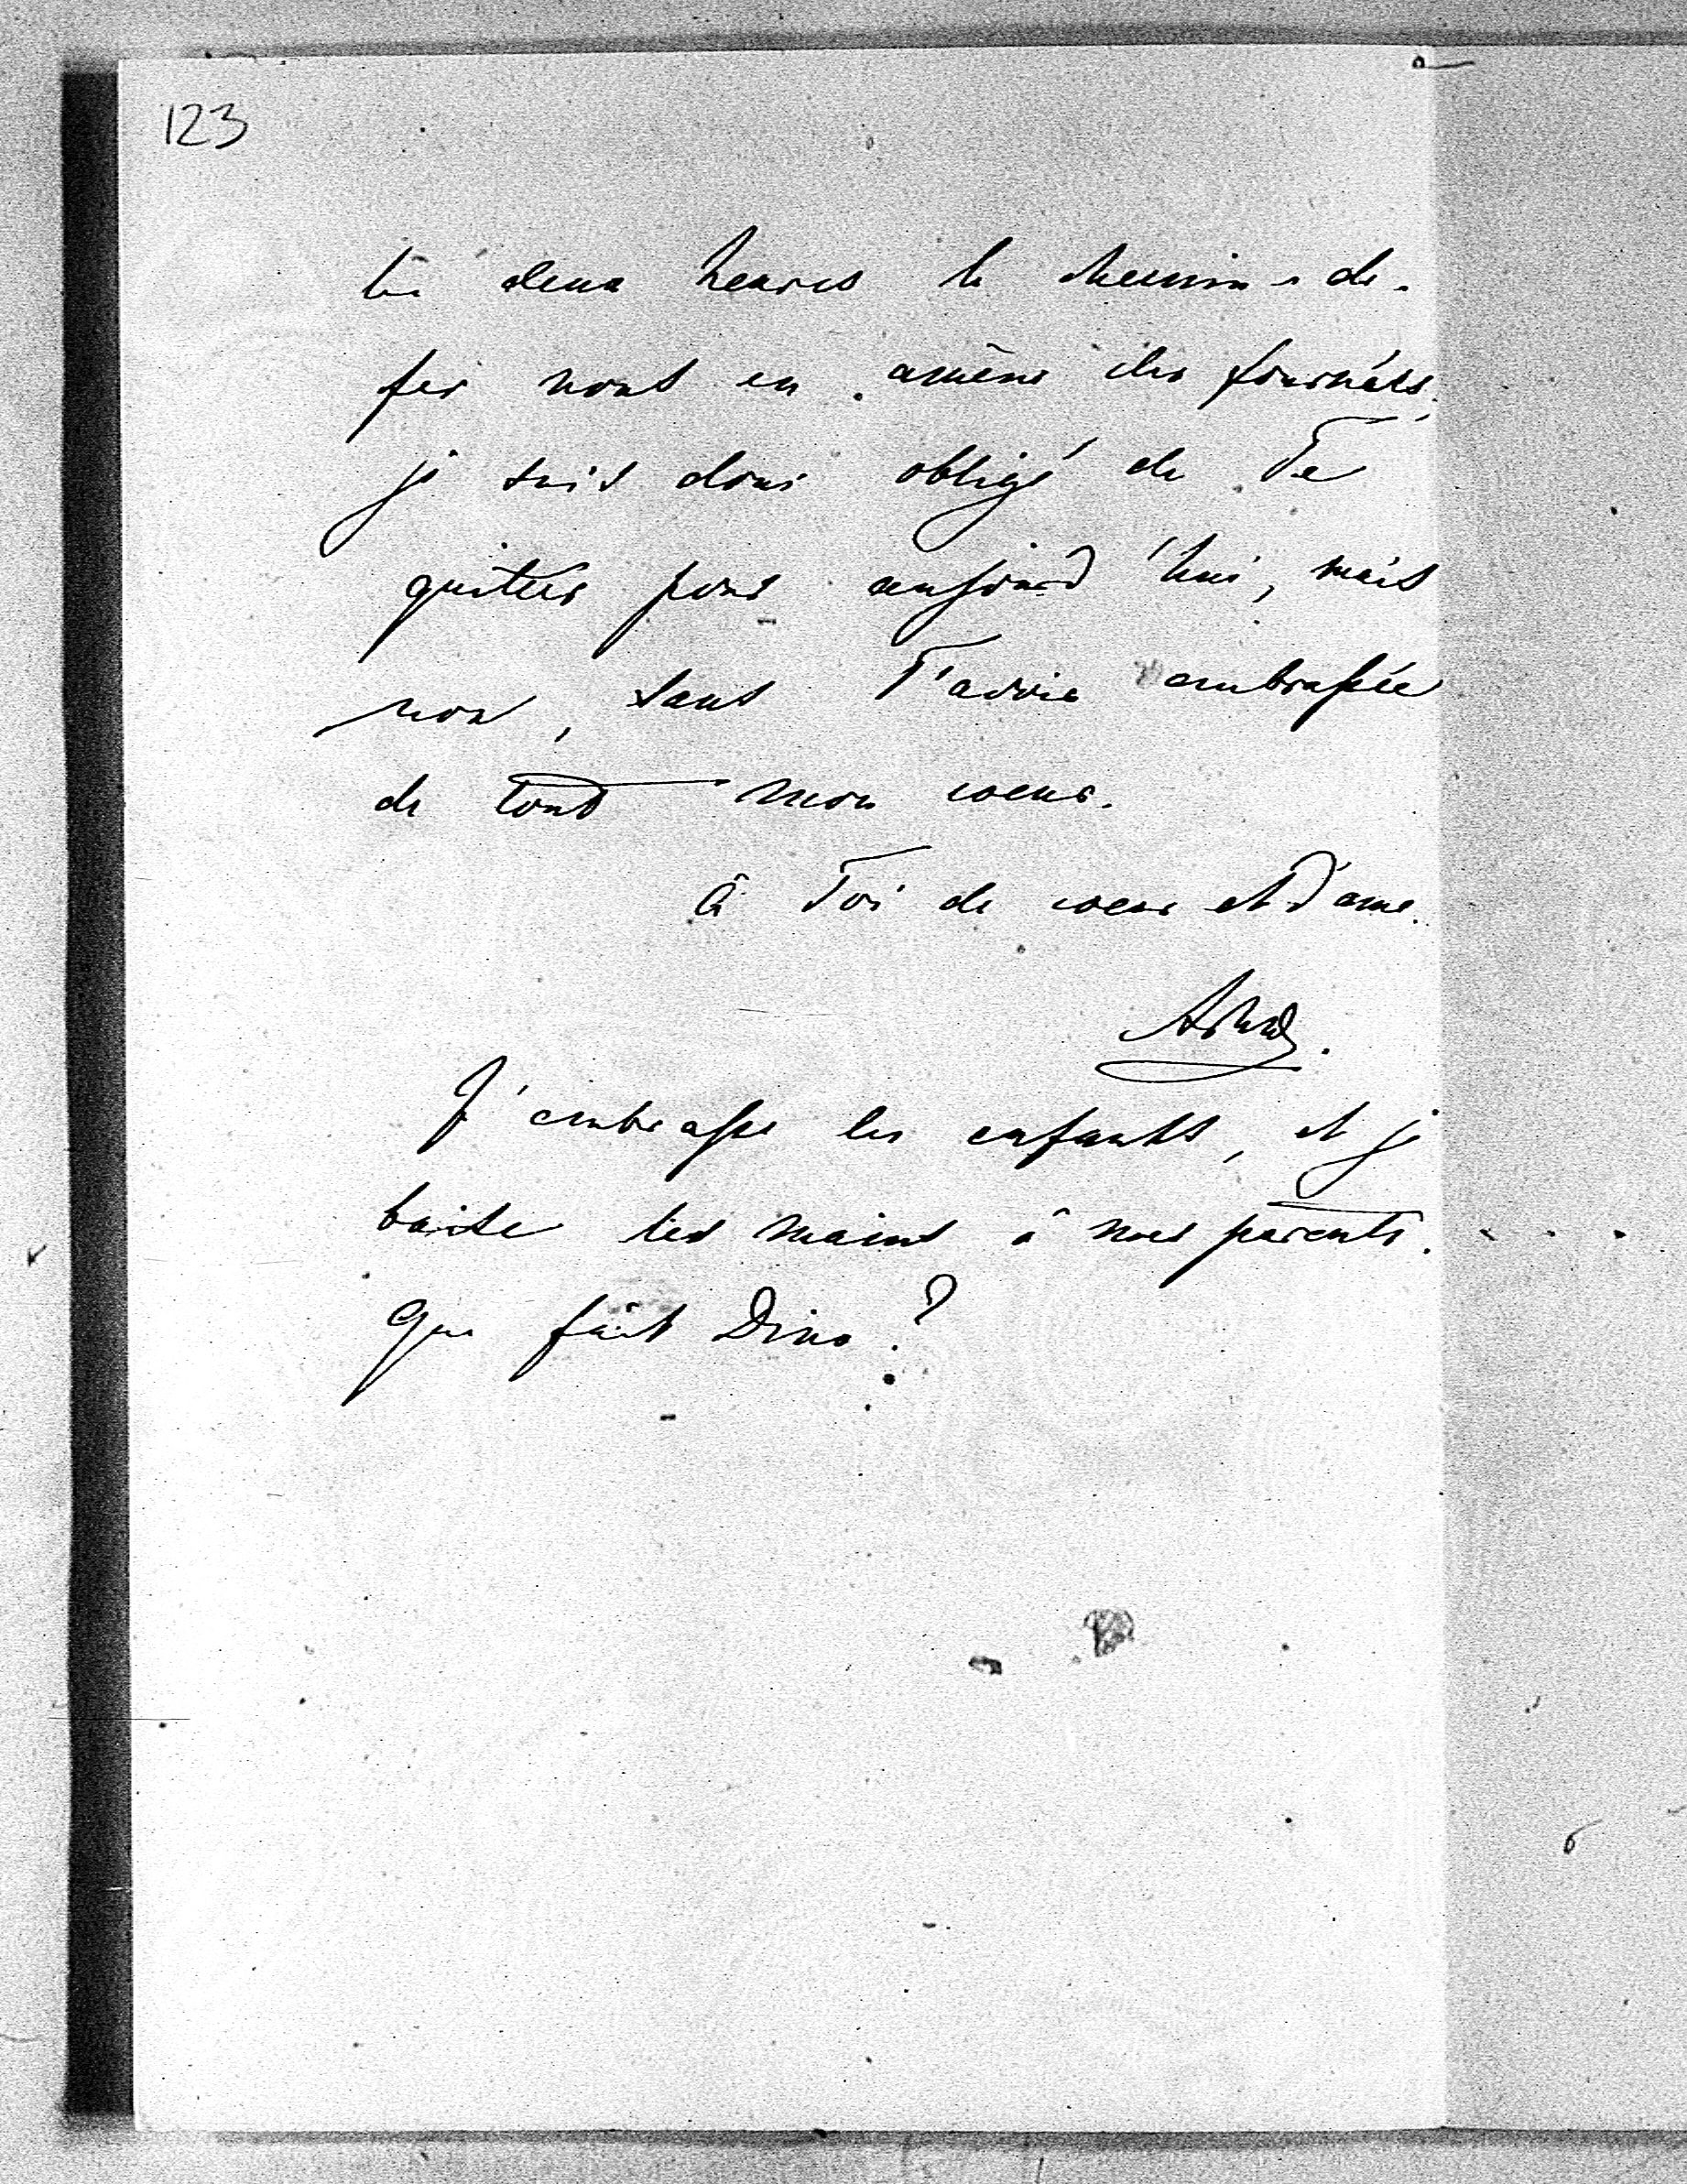 123
les deux heures le chemin-de-
fer nous en amène des fournées,
je suis donc obligé de Te
quitter pour aujourd'hui, mais
non, sans T'avoir embrassée
de tout mon coeur.
à Toi de coeur et d'ame.
J'embrasse les enfants, et je
baise les mains à nos parents.
Que fait Dino?